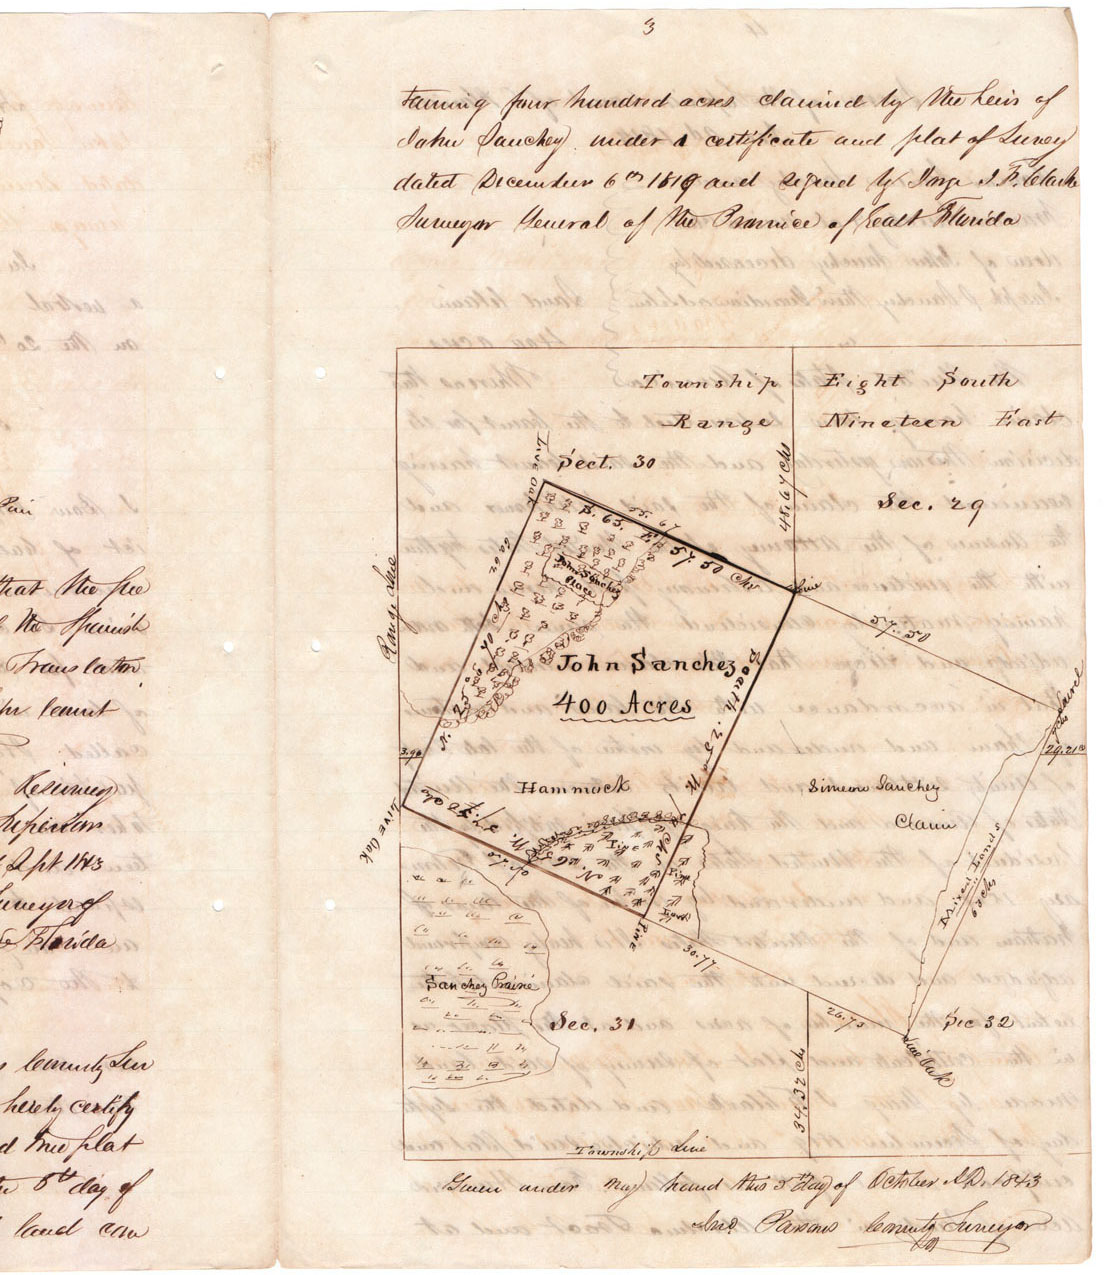 3
taining four hundred acres claimed by the heirs of
John Sanchez under a certificate and plat of Survey
dated December 6th 1819 and signed by Jorge J. F. Clarke
Surveyor General of the Province of East Florida
Township Eight South
Range Nineteen East
Sect. 30
Sec. 29
48.67 chs
Live Oak
S. 65. E.
57.50 Chs
John Sanchez
place
Range Line
Pine
57.50
John Sanchez
400 Acres
N. 25°
South. 25° W.
Laurel
3.90
29.21
Hammock
Simeon Sanchez
Claim
Live Oak
N. 65
Pine
Pine
Land
Mixen Lands
62 chs
Pine
30.77
Sanchez Prairie
Sec. 31
26.73
Sec 32
Live Oak
34.32 chs
Township Line
Given under my hand this 5th Day of October A.D. 1843
Jno. Parsons County Surveyor
that the fre
the Spanish
Translation
Sept 1843
Surveyor of
Florida
County Sur
hereby certify
d true plat
6th day of
land con